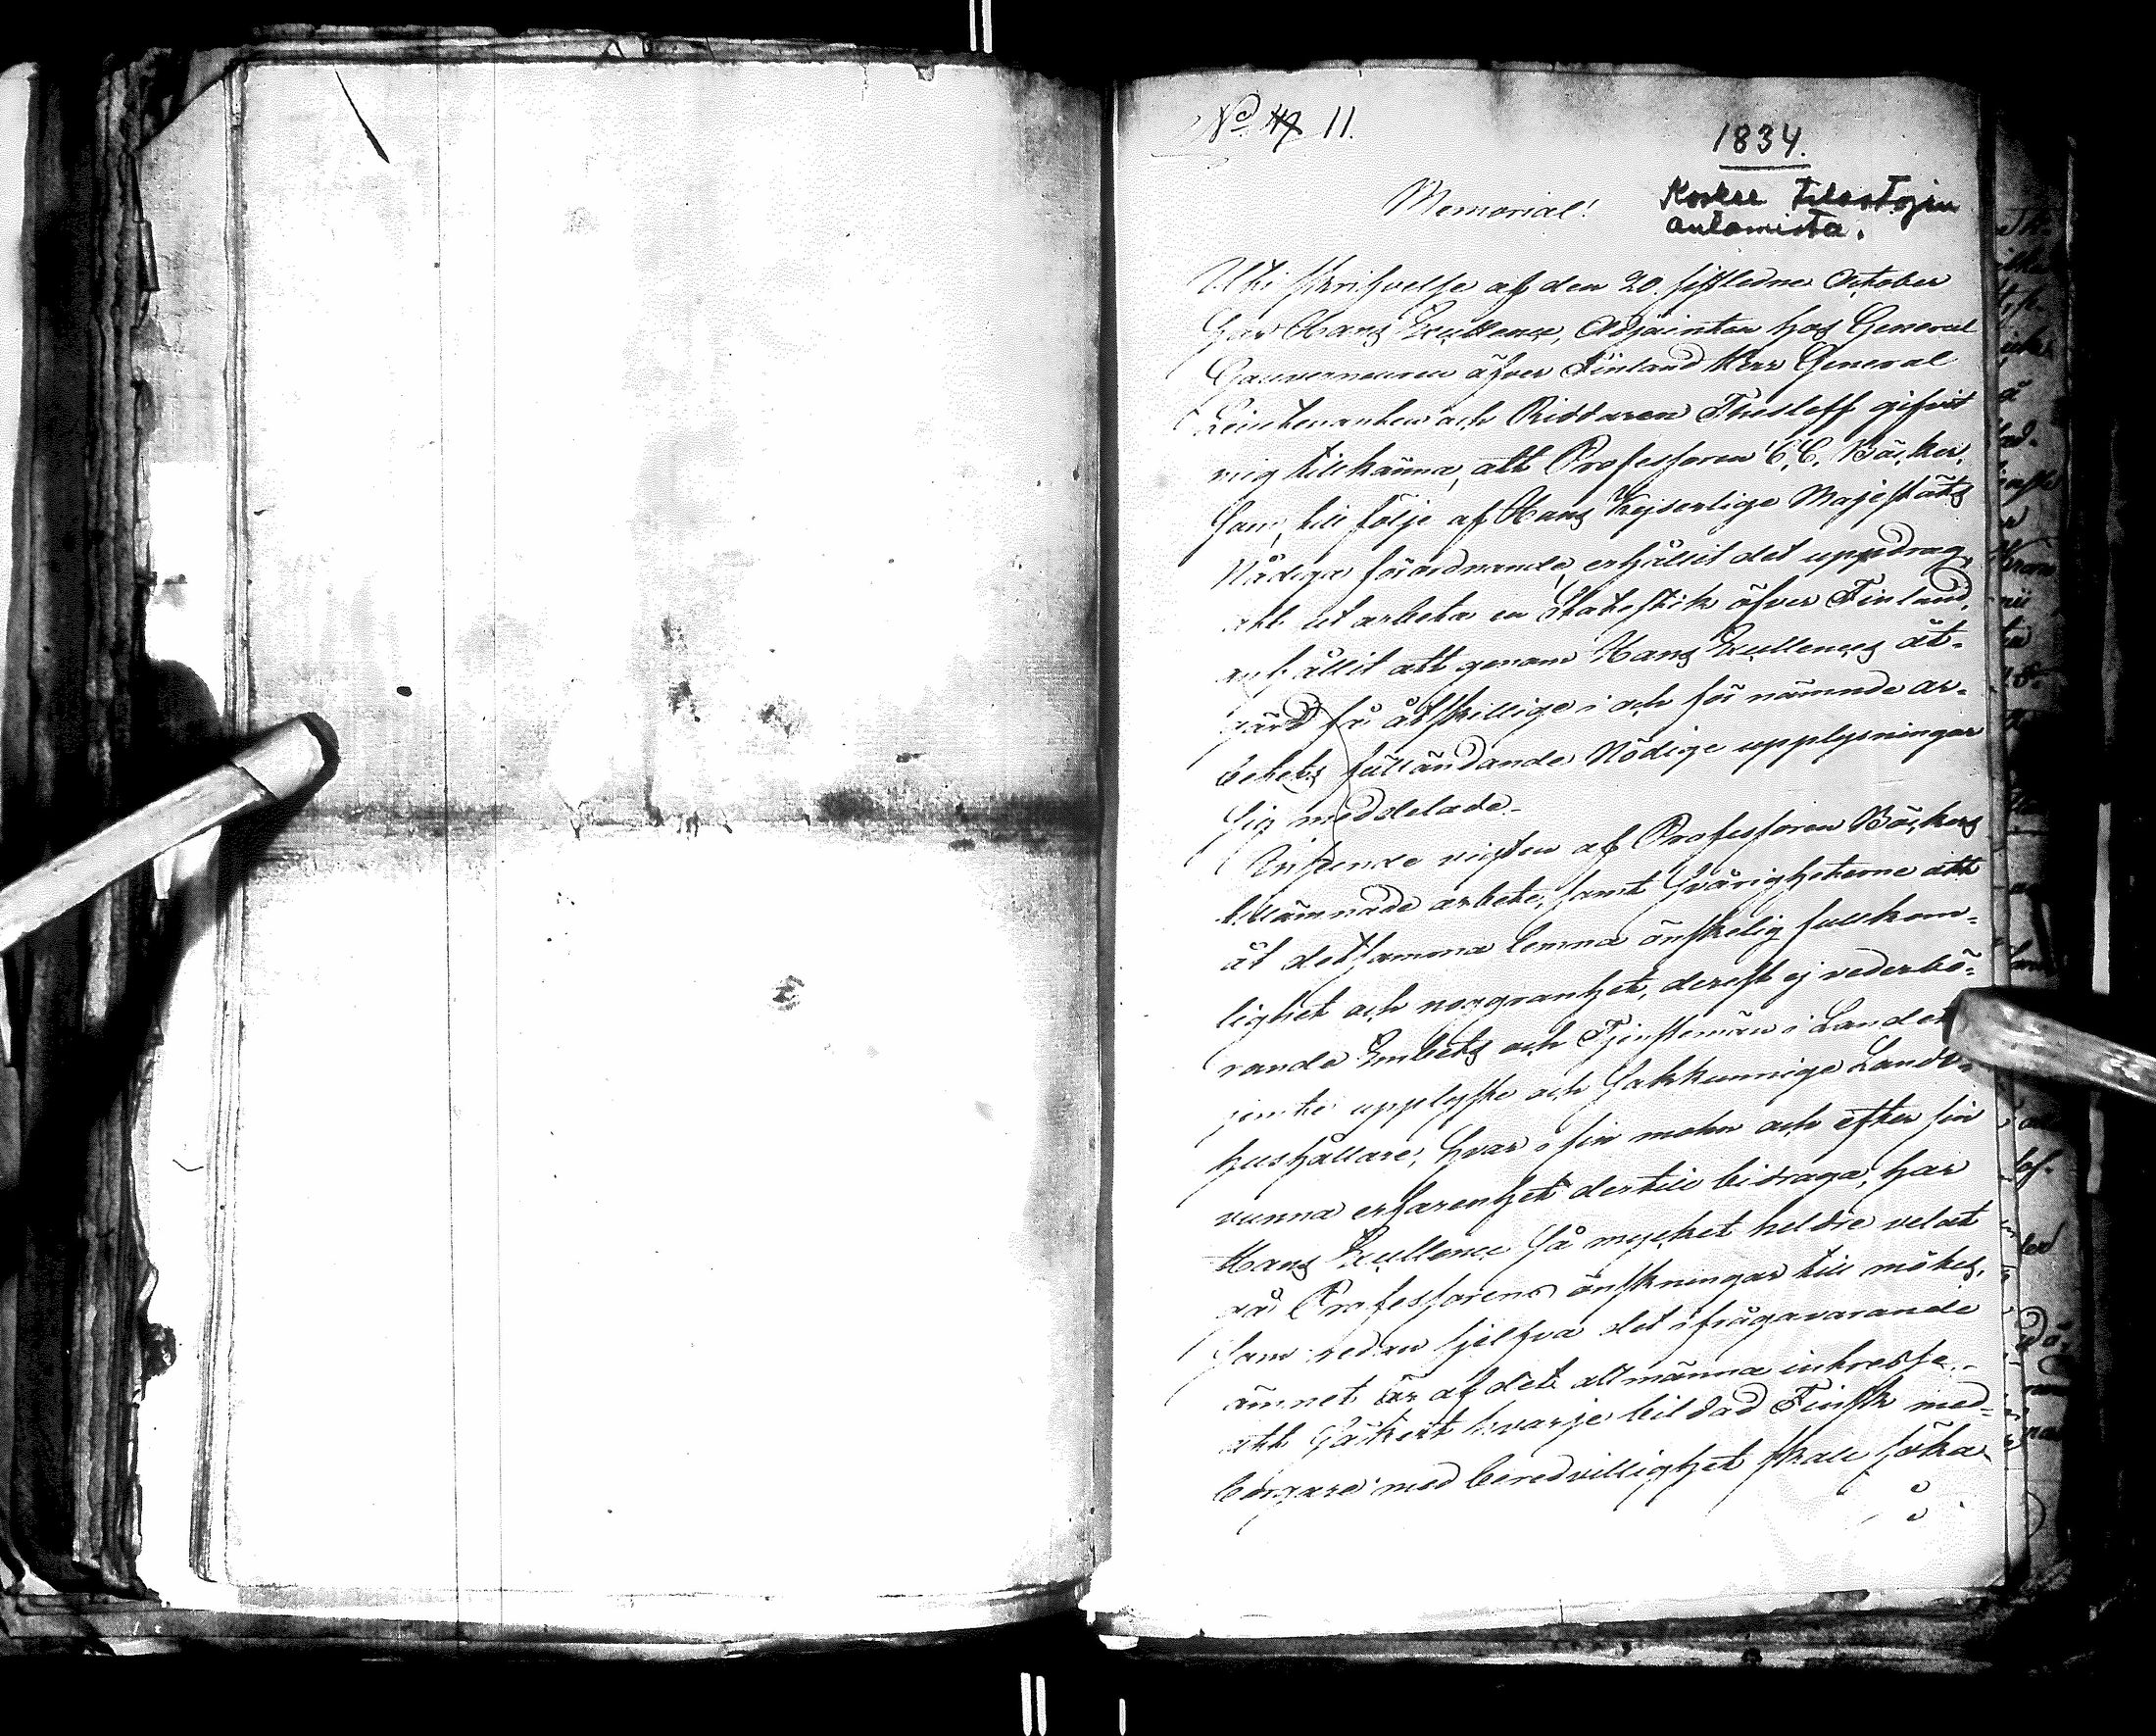 No 11.
1834.
Koskee tilastojen
antamista.
Memorial!
Uti skrifvelse af den 20. sistledne October
har Hans Excellence, Adjointen hos General
Gouverneuren öfver Finland Herr General
Lieutenanten och Riddaren Thesleff gifvit
mig tillkänna, att Professoren C. C. Böcker,
som, till följe af Hans Kejserlige Majestäts
Nådiga förordnande, erhållit det uppdrag,
att utarbeta en Statestik öfver Finland,
anhållit att genom Hans Excellences åt-
gärd få åtskillige i och för nämnde ar-
betets fulländande Nödige upplysningar
sig meddelade.
Inseende vigten af Professoren Böckers
tillämnade arbete, samt svårigheterne att
åt detsamma lemna önskelig fullkom-
lighet och noggranhet, derest ej vederbö-
rande Embets och Tjenstemän i Landet
jemte upplyste och sakkunnige Landt-
hushållare, hvar i sin mohn och efter sin
vunna erfarenhet dertill bidraga, har
Hans Excellence så mycket heldre velat
gå Professorens önskningar till mötes,
som redan sjelfva det ifrågavarande
ämnet är af det allmänna intresse,
att säkert hvarje bildad Finsk med-
borgare med beredvillighet skall söka